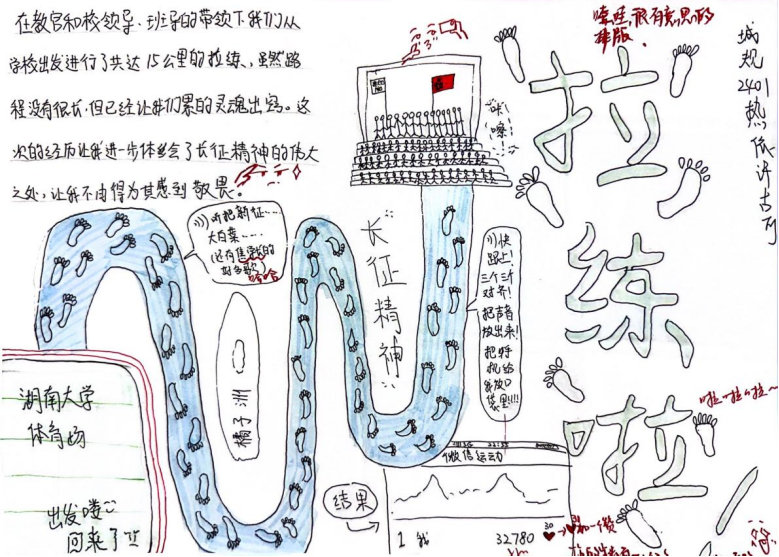 在教官和校领导、班导的带领下我们从
学校出发进行了共达15公里的拉练,虽然路
程没有很长,但已经让我们累的灵魂出窍。这
次的经历让我进一步体会了长征精神的伟大
之处,让我不由得为其感到敬畏。
哇哇,很有意思的
排版。
城规2401
拉
练
啦
听把新征...
大白菜....
(还有隹学长的
好多歌)
哈哈
"咔
嚓"
长征精神
快
跟上!
三个三个
对齐!
把声音
放出来!
把手
机给
我放口
袋里!!!!
橘子洲
湖南大学
体育场
出发喽
回来了
结果
微信运动
1 我 32780
30
啦~啦~啦~